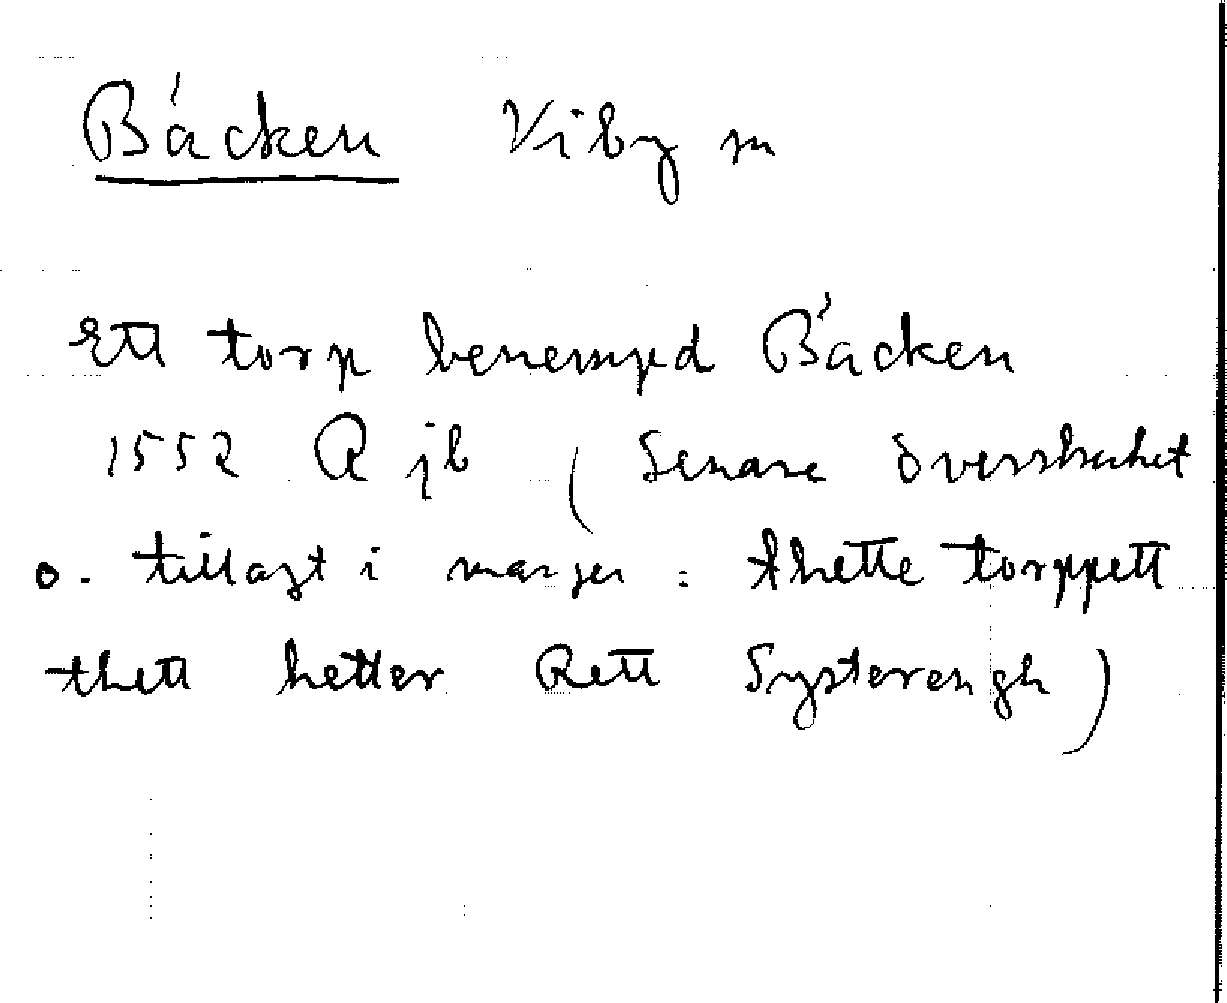 Bäcken Viby sn
Ett torp benempd Bäcken
1552 R jb (Senare överstruket
o. tillagt i margen : thette torppett
thett hetter Rett Systerengh)